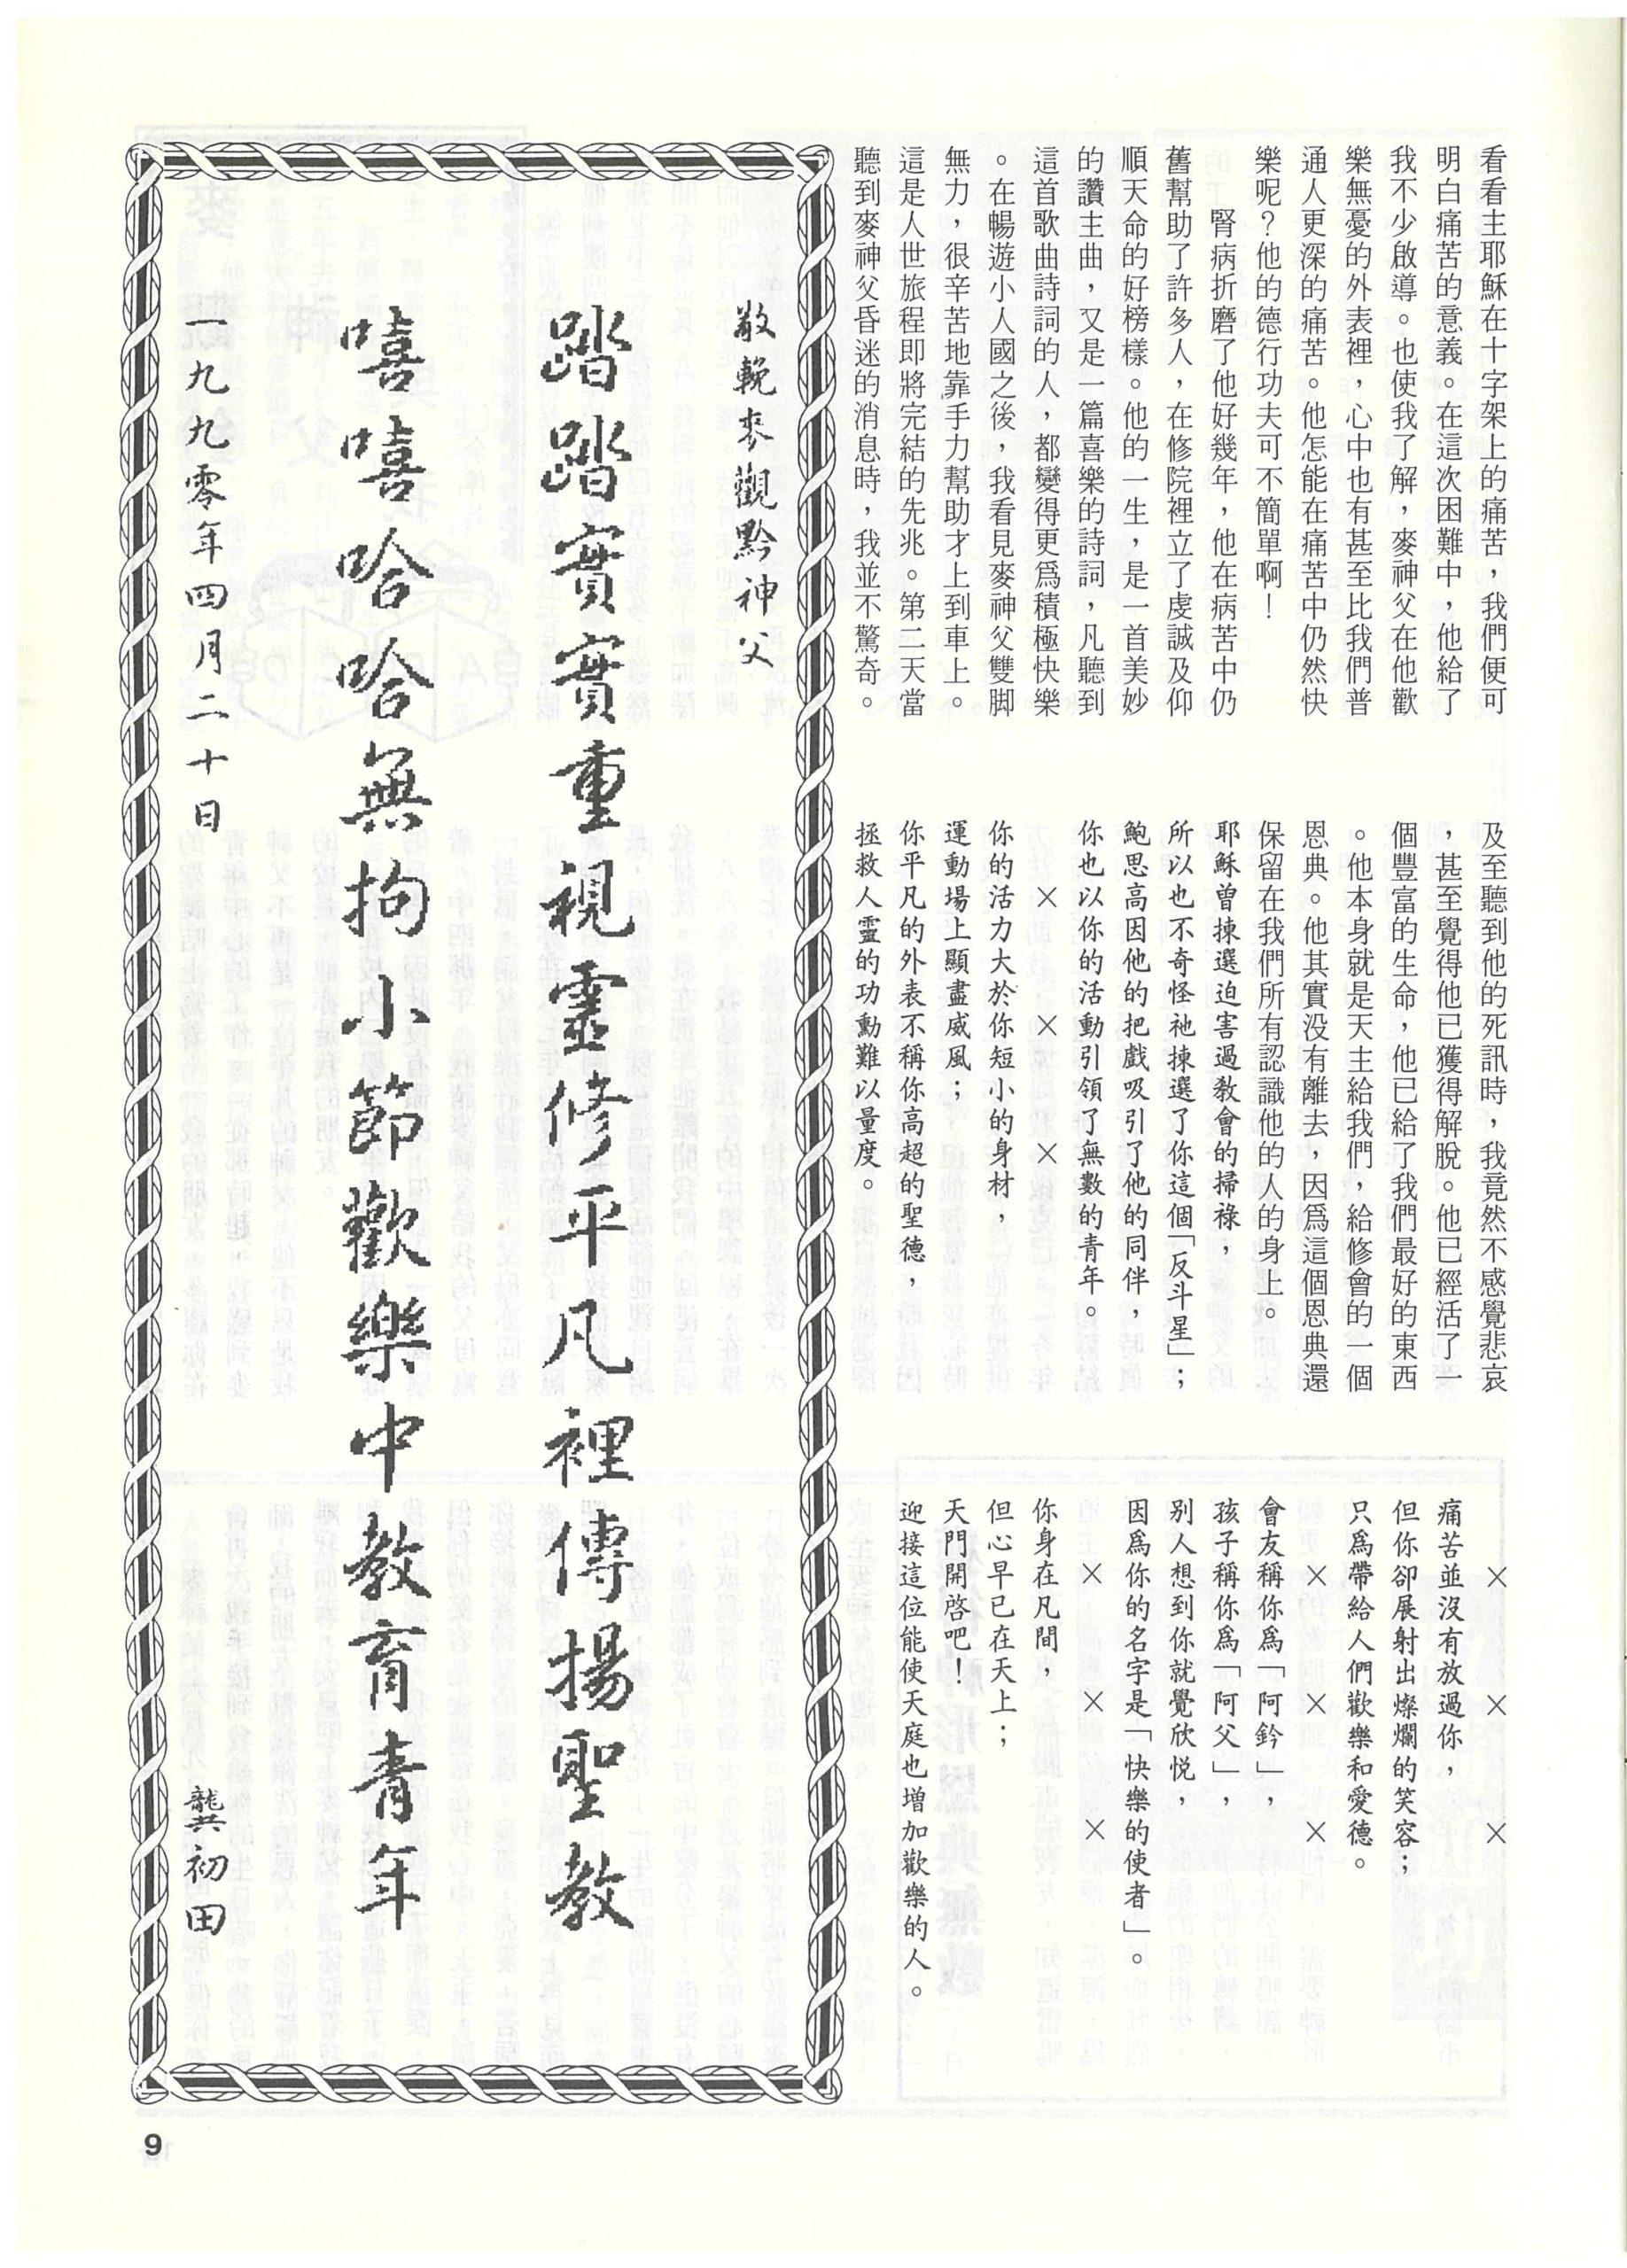 看看主耶穌在十字架上的痛苦，我們便可
明白痛苦的意義。在這次困難中，他給了
我不少啟導。也使我了解，麥神父在他歡
樂無憂的外表裡，心中也有甚至比我們普
通人更深的痛苦。他怎能在痛苦中仍然快
樂呢？他的德行功夫可不簡單啊！
腎病折磨了他好幾年，他在病苦中仍
舊幫助了許多人，在修院裡立了虔誠及仰
順天命的好榜樣。他的一生，是一首美妙
的讚主曲，又是一篇喜樂的詩詞，凡聽到
這首歌曲詩詞的人，都變得更爲積極快樂
。在暢遊小人國之後，我看見麥神父雙脚
無力，很辛苦地靠手力幫助才上到車上。
這是人世旅程即將完結的先兆。第二天當
聽到麥神父昏迷的消息時，我並不驚奇。
及至聽到他的死訊時，我竟然不感覺悲哀
，甚至覺得他已獲得解脫。他已經活了一
個豐富的生命，他已給了我們最好的東西
。他本身就是天主給我們，給修會的一個
恩典。他其實没有離去，因爲這個恩典還
保留在我們所有認識他的人的身上。
耶穌曾揀選迫害過教會的掃祿，
所以也不奇怪祂揀選了你這個「反斗星」；
鮑思高因他的把戲吸引了他的同伴，
你也以你的活動引領了無數的青年。
× × ×
你的活力大於你短小的身材，
運動場上顯盡威風；
你平凡的外表不稱你高超的聖德，
拯救人靈的功勳難以量度。
× × ×
痛苦並沒有放過你，
但你卻展射出燦爛的笑容；
只爲帶給人們歡樂和愛德。
× × ×
會友稱你爲「阿鈐」，
孩子稱你爲「阿父」，
別人想到你就覺欣悅，
因爲你的名字是「快樂的使者」。
× × ×
你身在凡間，
但心早已在天上；
天門開啓吧！
迎接這位能使天庭也增加歡樂的人。
敬輓麥觀黔神父
踏踏實實重視靈修平凡裡傳揚聖教
嘻嘻哈哈無拘小節歡樂中教育青年
一九九零年四月二十日
龔初田
9